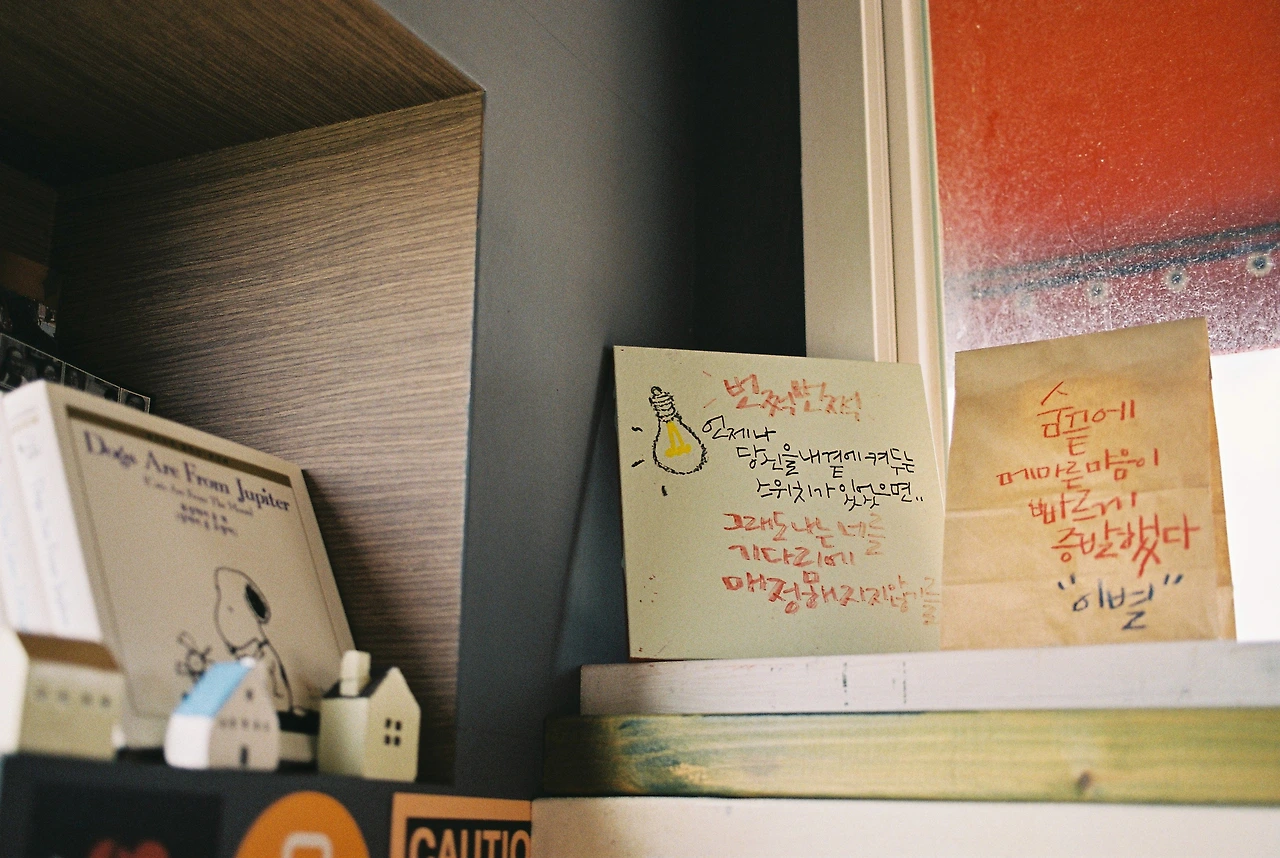 Dogs Are From Jupiter
(Cats Are From The Moon)
번쩍번쩍
언제나
당신을 내곁에 켜두는
스위치가 있었으면..
그래도 나는 너를
기다림에
매정해지지않기를
숨곁에
메마른 마음이
빠르게
증발했다
"이별"
CAUTIO